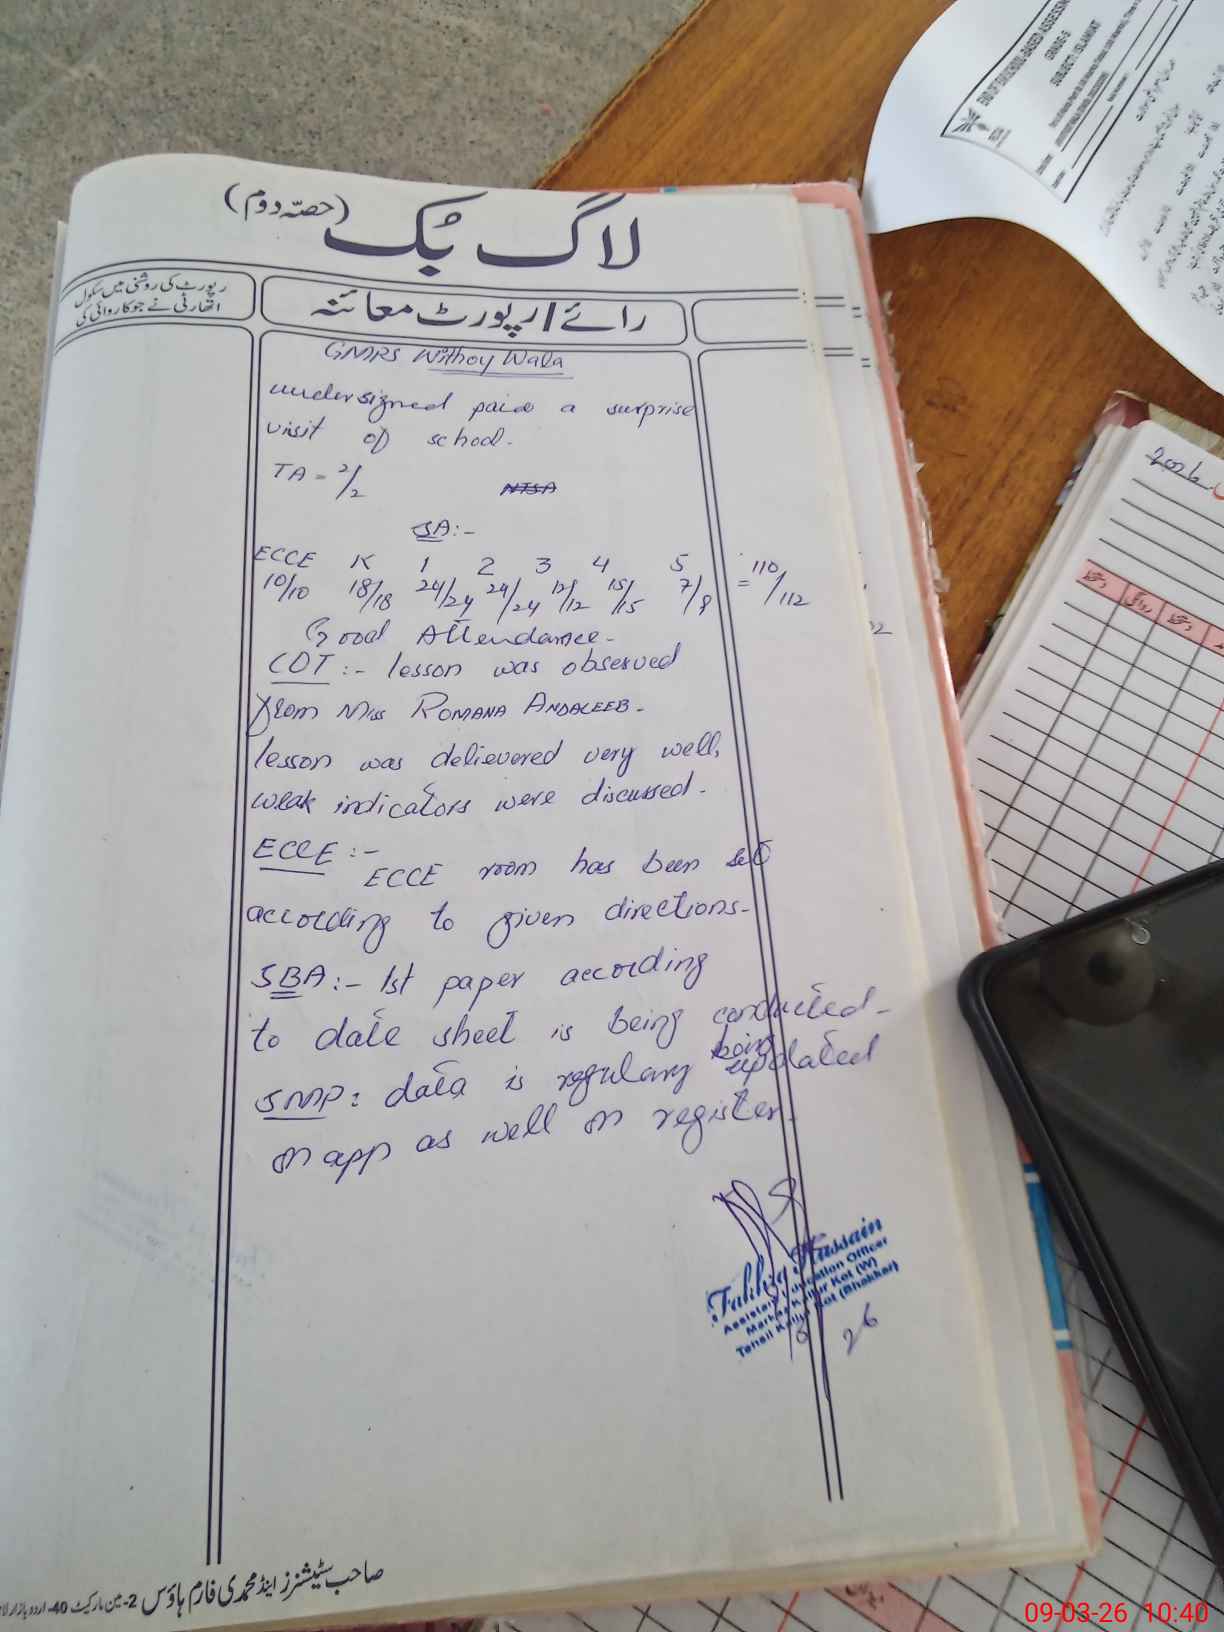 لاگ بُک (حصّہ دوم)
رپورٹ کی روشنی میں سکول
اتھارٹی نے جو کاروائی کی
رائے / رپورٹ معائنہ
GMRS Withoy Wala
undersigned paid a surprise
visit of school.
TA = 2/2 NTSA
SA:-
ECCE K 1 2 3 4 5
10/10 18/18 24/24 24/24 12/12 15/15 7/9 = 110/112
Good Attendance.
COT :- lesson was observed
from Miss ROMANA ANDALEEB.
lesson was delievered very well,
weak indicators were discussed.
ECCE :-
ECCE room has been set
according to given directions.
SBA :- 1st paper according
to date sheet is being conducted.
SMP: data is regulary being updated
on app as well on register.
Hussain
Assistant Education Officer
Markaz Kallur Kot (W)
Tehsil Kallur Kot (Bhakkar)
26
صاحب سٹیشنرز اینڈ محمدی فارم ہاؤس 2-مین مارکیٹ 40-اردو بازار
GRADE-5
SUBJECT: ISLAMIAT
2026
دستخط
روانگی
دستخط
09-03-26 10:40